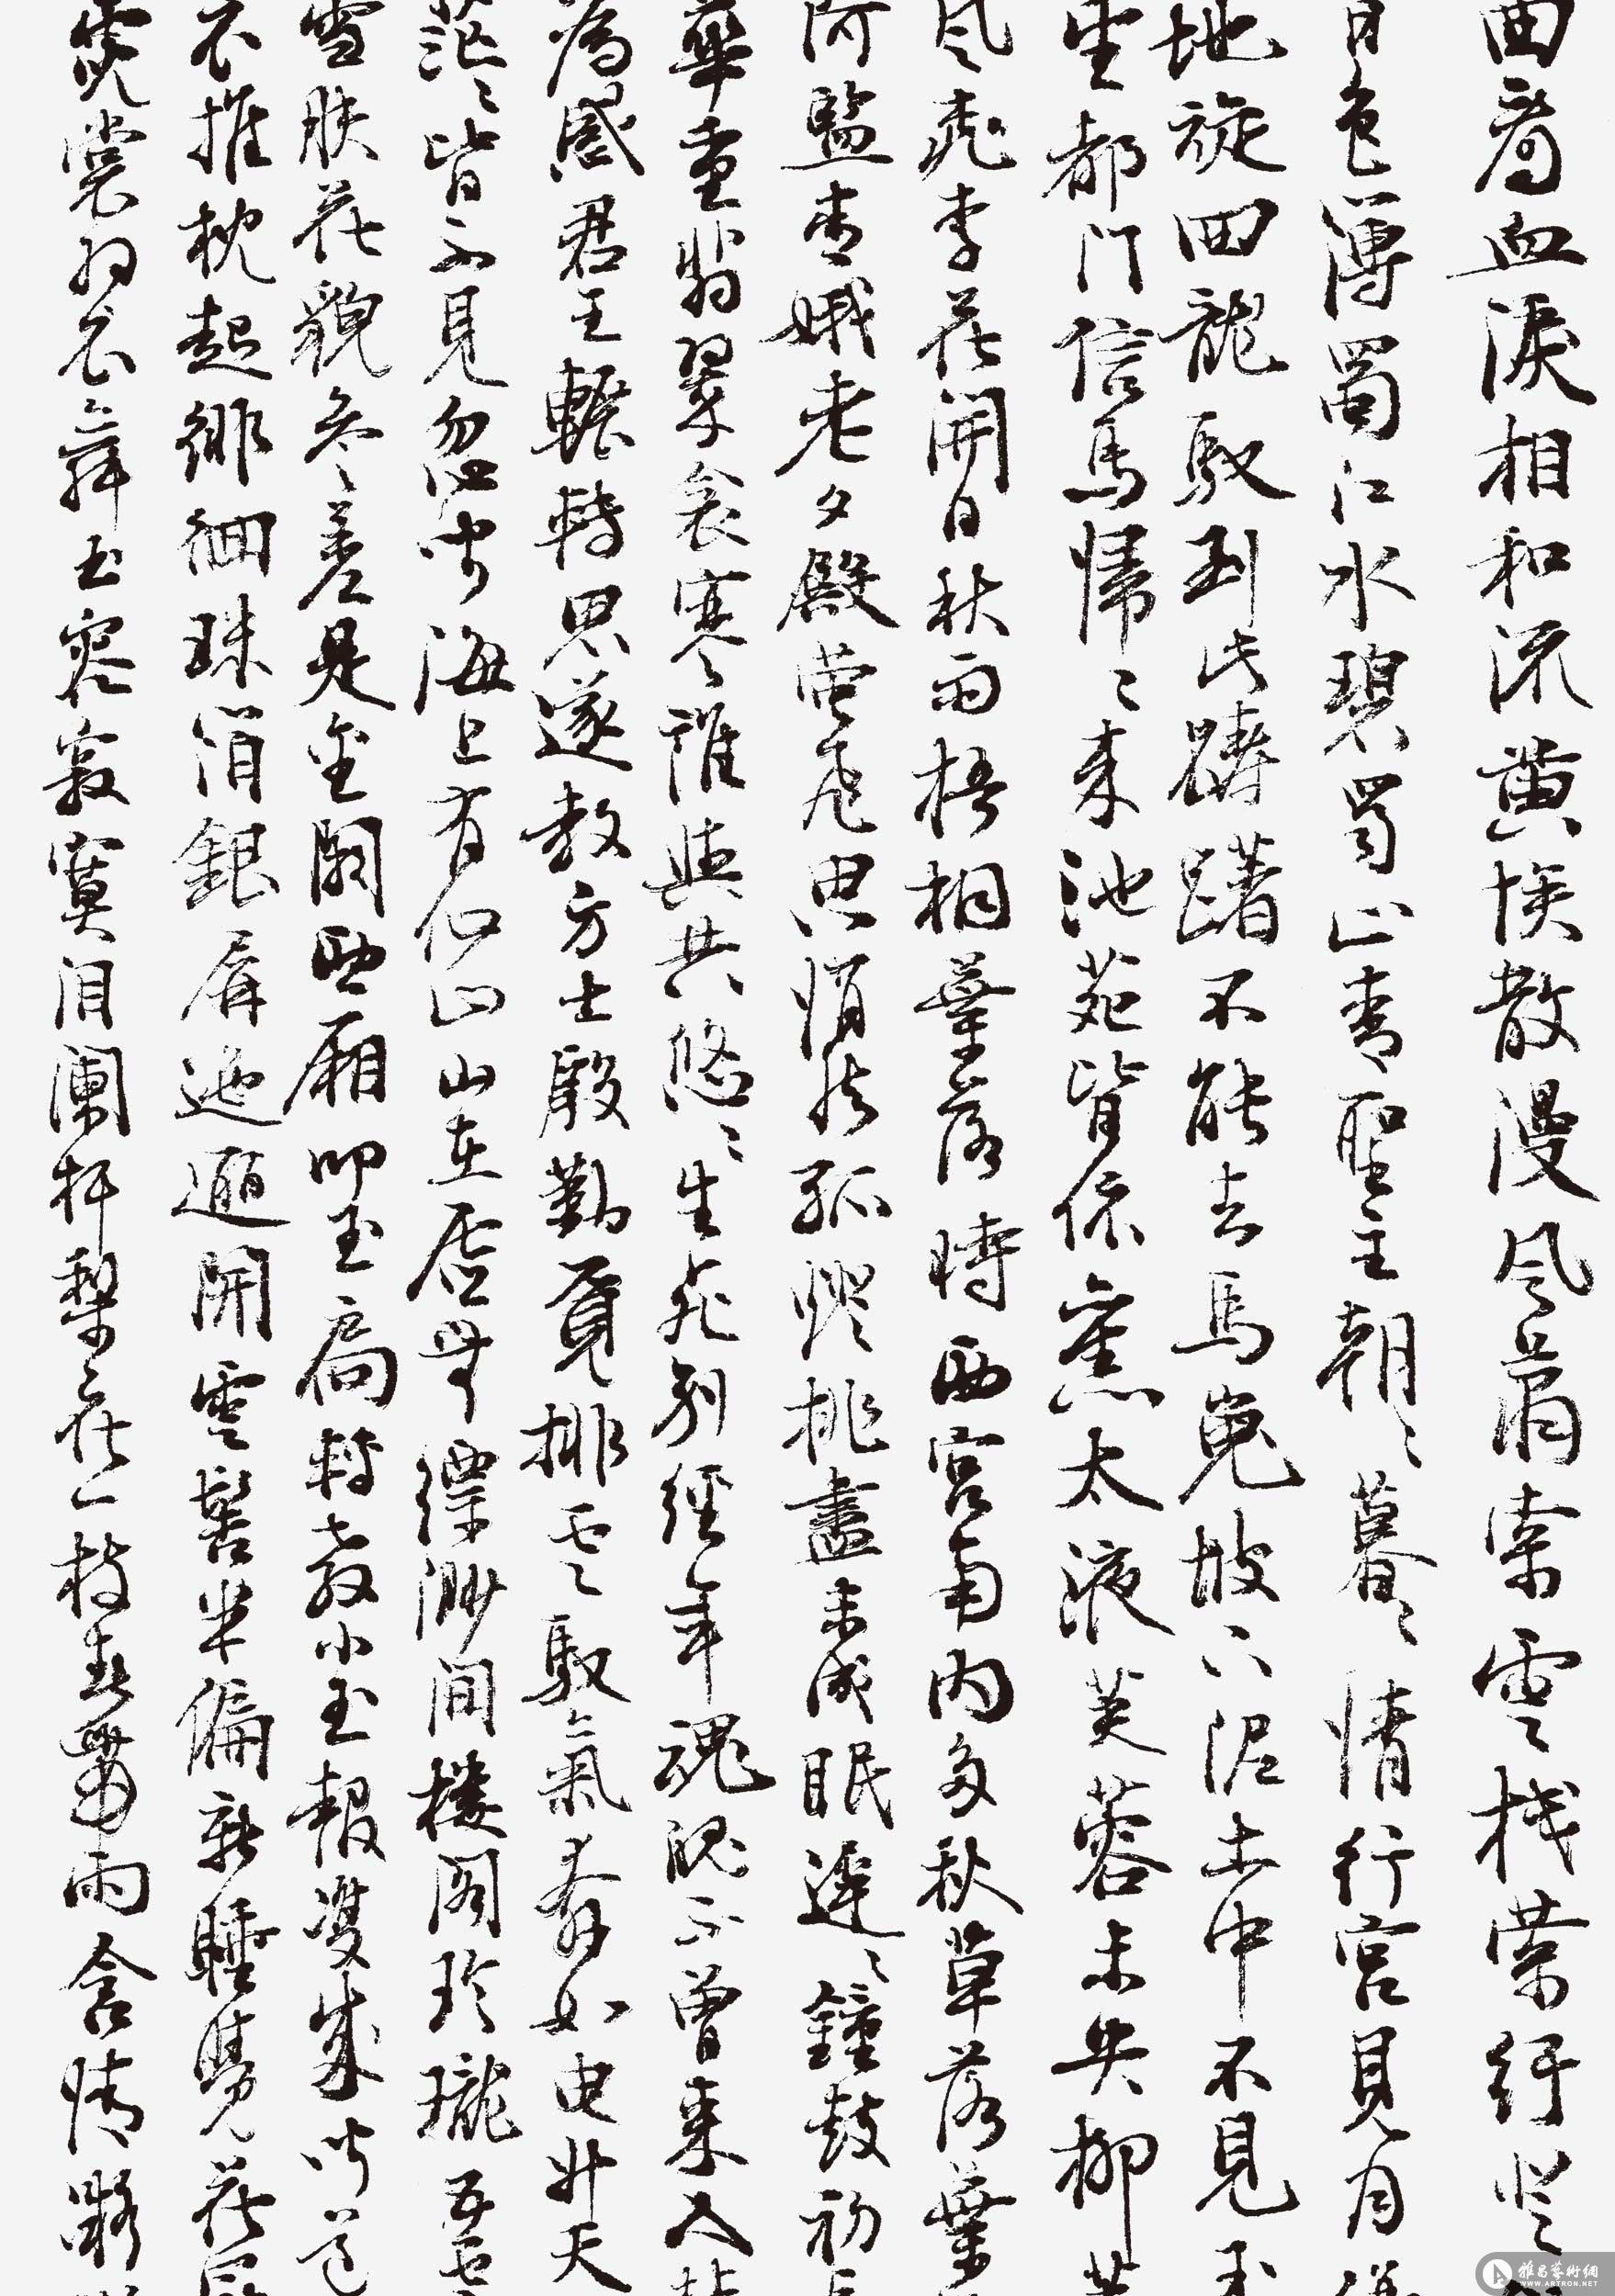 回看血淚相和流黄埃散漫风蕭索雲栈萦紆登
日色薄蜀江水碧蜀山青聖主朝々暮々情行宫見月傷
地旋回龍馭到此躊躇不能去馬嵬坡下泥土中不見玉
望都门信馬歸々来池苑皆依舊太液芙蓉未央柳芙
风桃李花開日秋雨梧桐葉落時西宫南内多秋草落葉
阿監青娥老夕殿萤飛思悄然孤燈挑盡未成眠遲々鐘鼓初長
華重翡翠衾寒誰與共悠々生死别經年魂魄不曾来入梦
為感君王輾轉思遂教方士殷勤覓排雲馭氣奔如电升天
茫々皆不見忽闻海上有仙山山在虚無縹渺间楼阁玲瓏五雲
雪肤花貌参差是金闕西廂叩玉扃轉教小玉報雙成闻道
衣推枕起徘徊珠箔銀屏迤邐開雲鬓半偏新睡覺花冠
霓裳羽衣舞玉容寂寞泪阑杆梨花一枝春帶雨含情凝
雅昌藝術網
WWW.ARTRON.NET